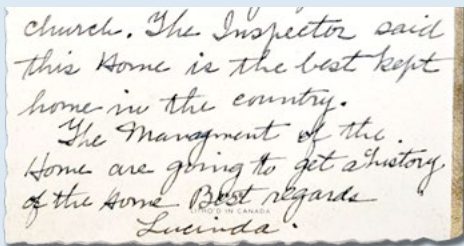 church. The Inspector said
this Home is the best kept
home in the country.
The Managment of the
Home are going to get a history
of the Home Best regards
LITHO'D IN CANADA
Lucinda.